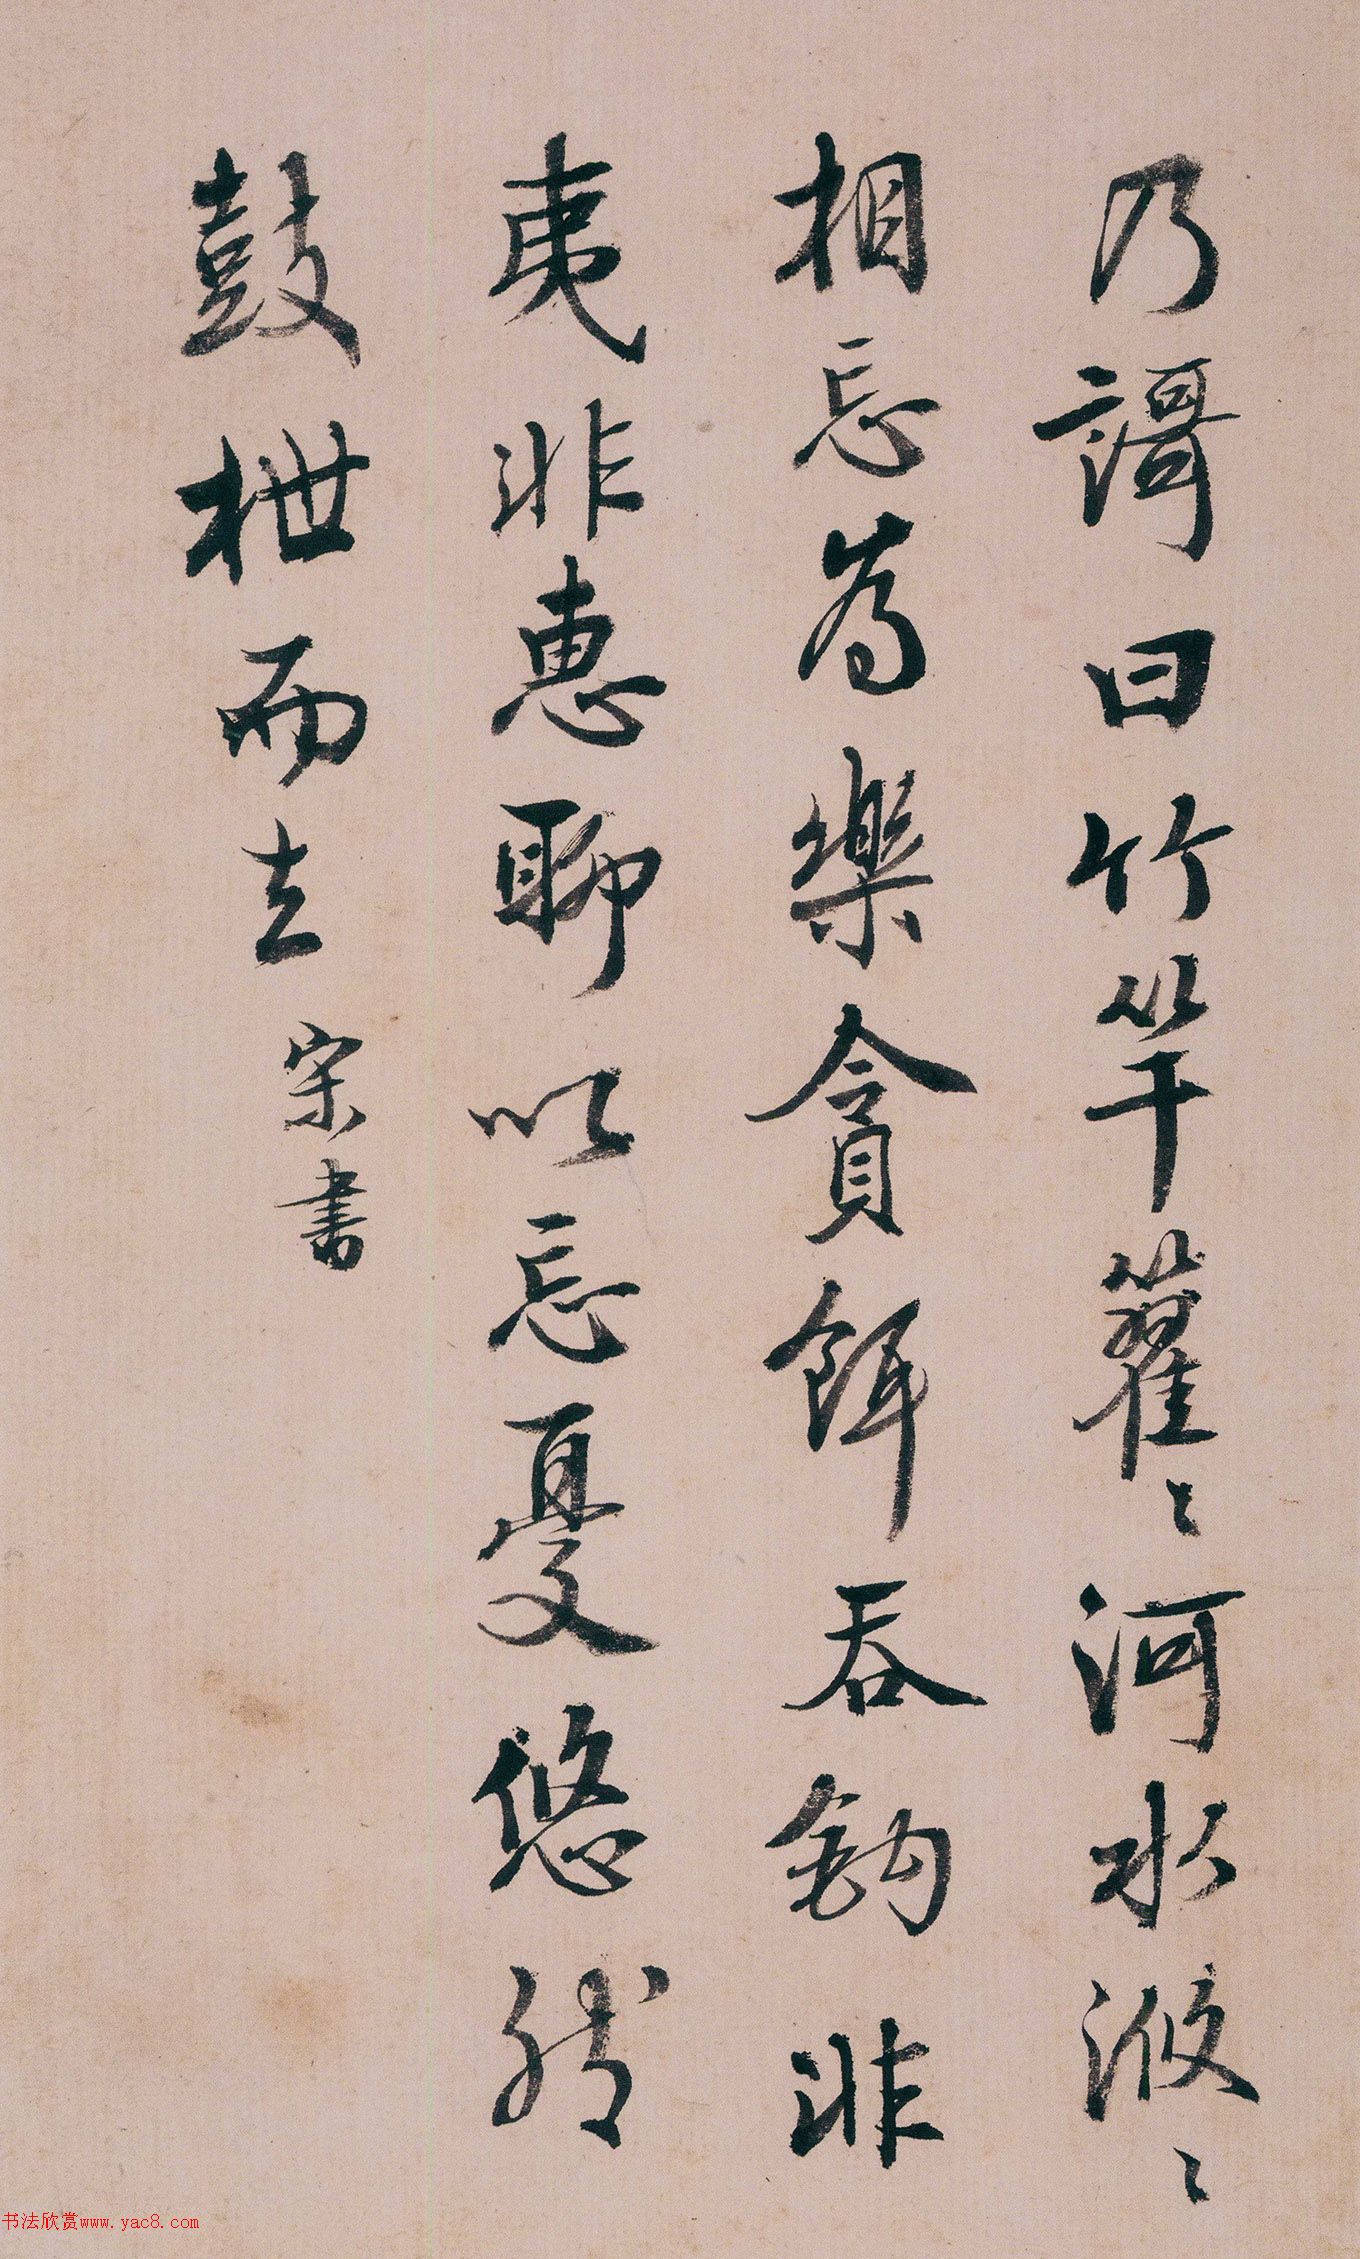 乃謌曰竹竿籊〻河水浟〻
相忘為樂貪餌吞鈎非
夷非惠聊以忘憂悠然
鼓枻而去
宋書
书法欣赏www.yac8.com